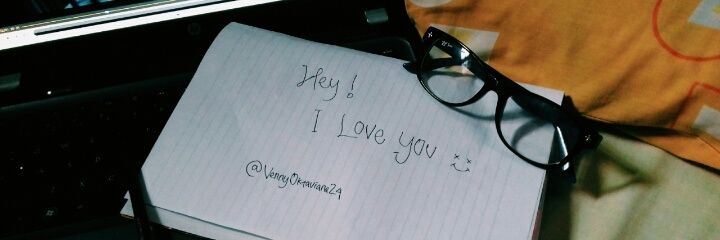 Hey!
I Love you
@VennyOktaviana24